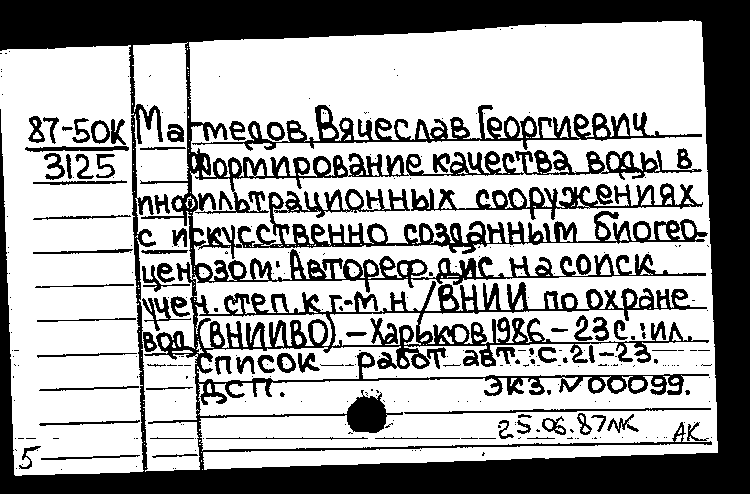 87-50К Магмедов, Вячеслав Георгиевич.
3125 Формирование качества воды в
инфильтрационных сооружениях
с искусственно созданным биогео-
ценозом: Автореф. дис. на соиск.
учен. степ. к г.-м. н. / ВНИИ по охране
вод (ВНИИВО). – Харьков, 1986. – 23 с. : ил.
Список работ авт.: с. 21-23.
ДСП. Экз. N 00099.
25.06.87 ЛК АК
5